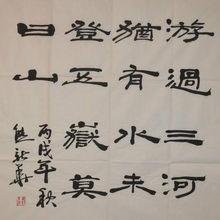 游過三河
猶有水未
登五嶽莫
曰山
丙戌年秋